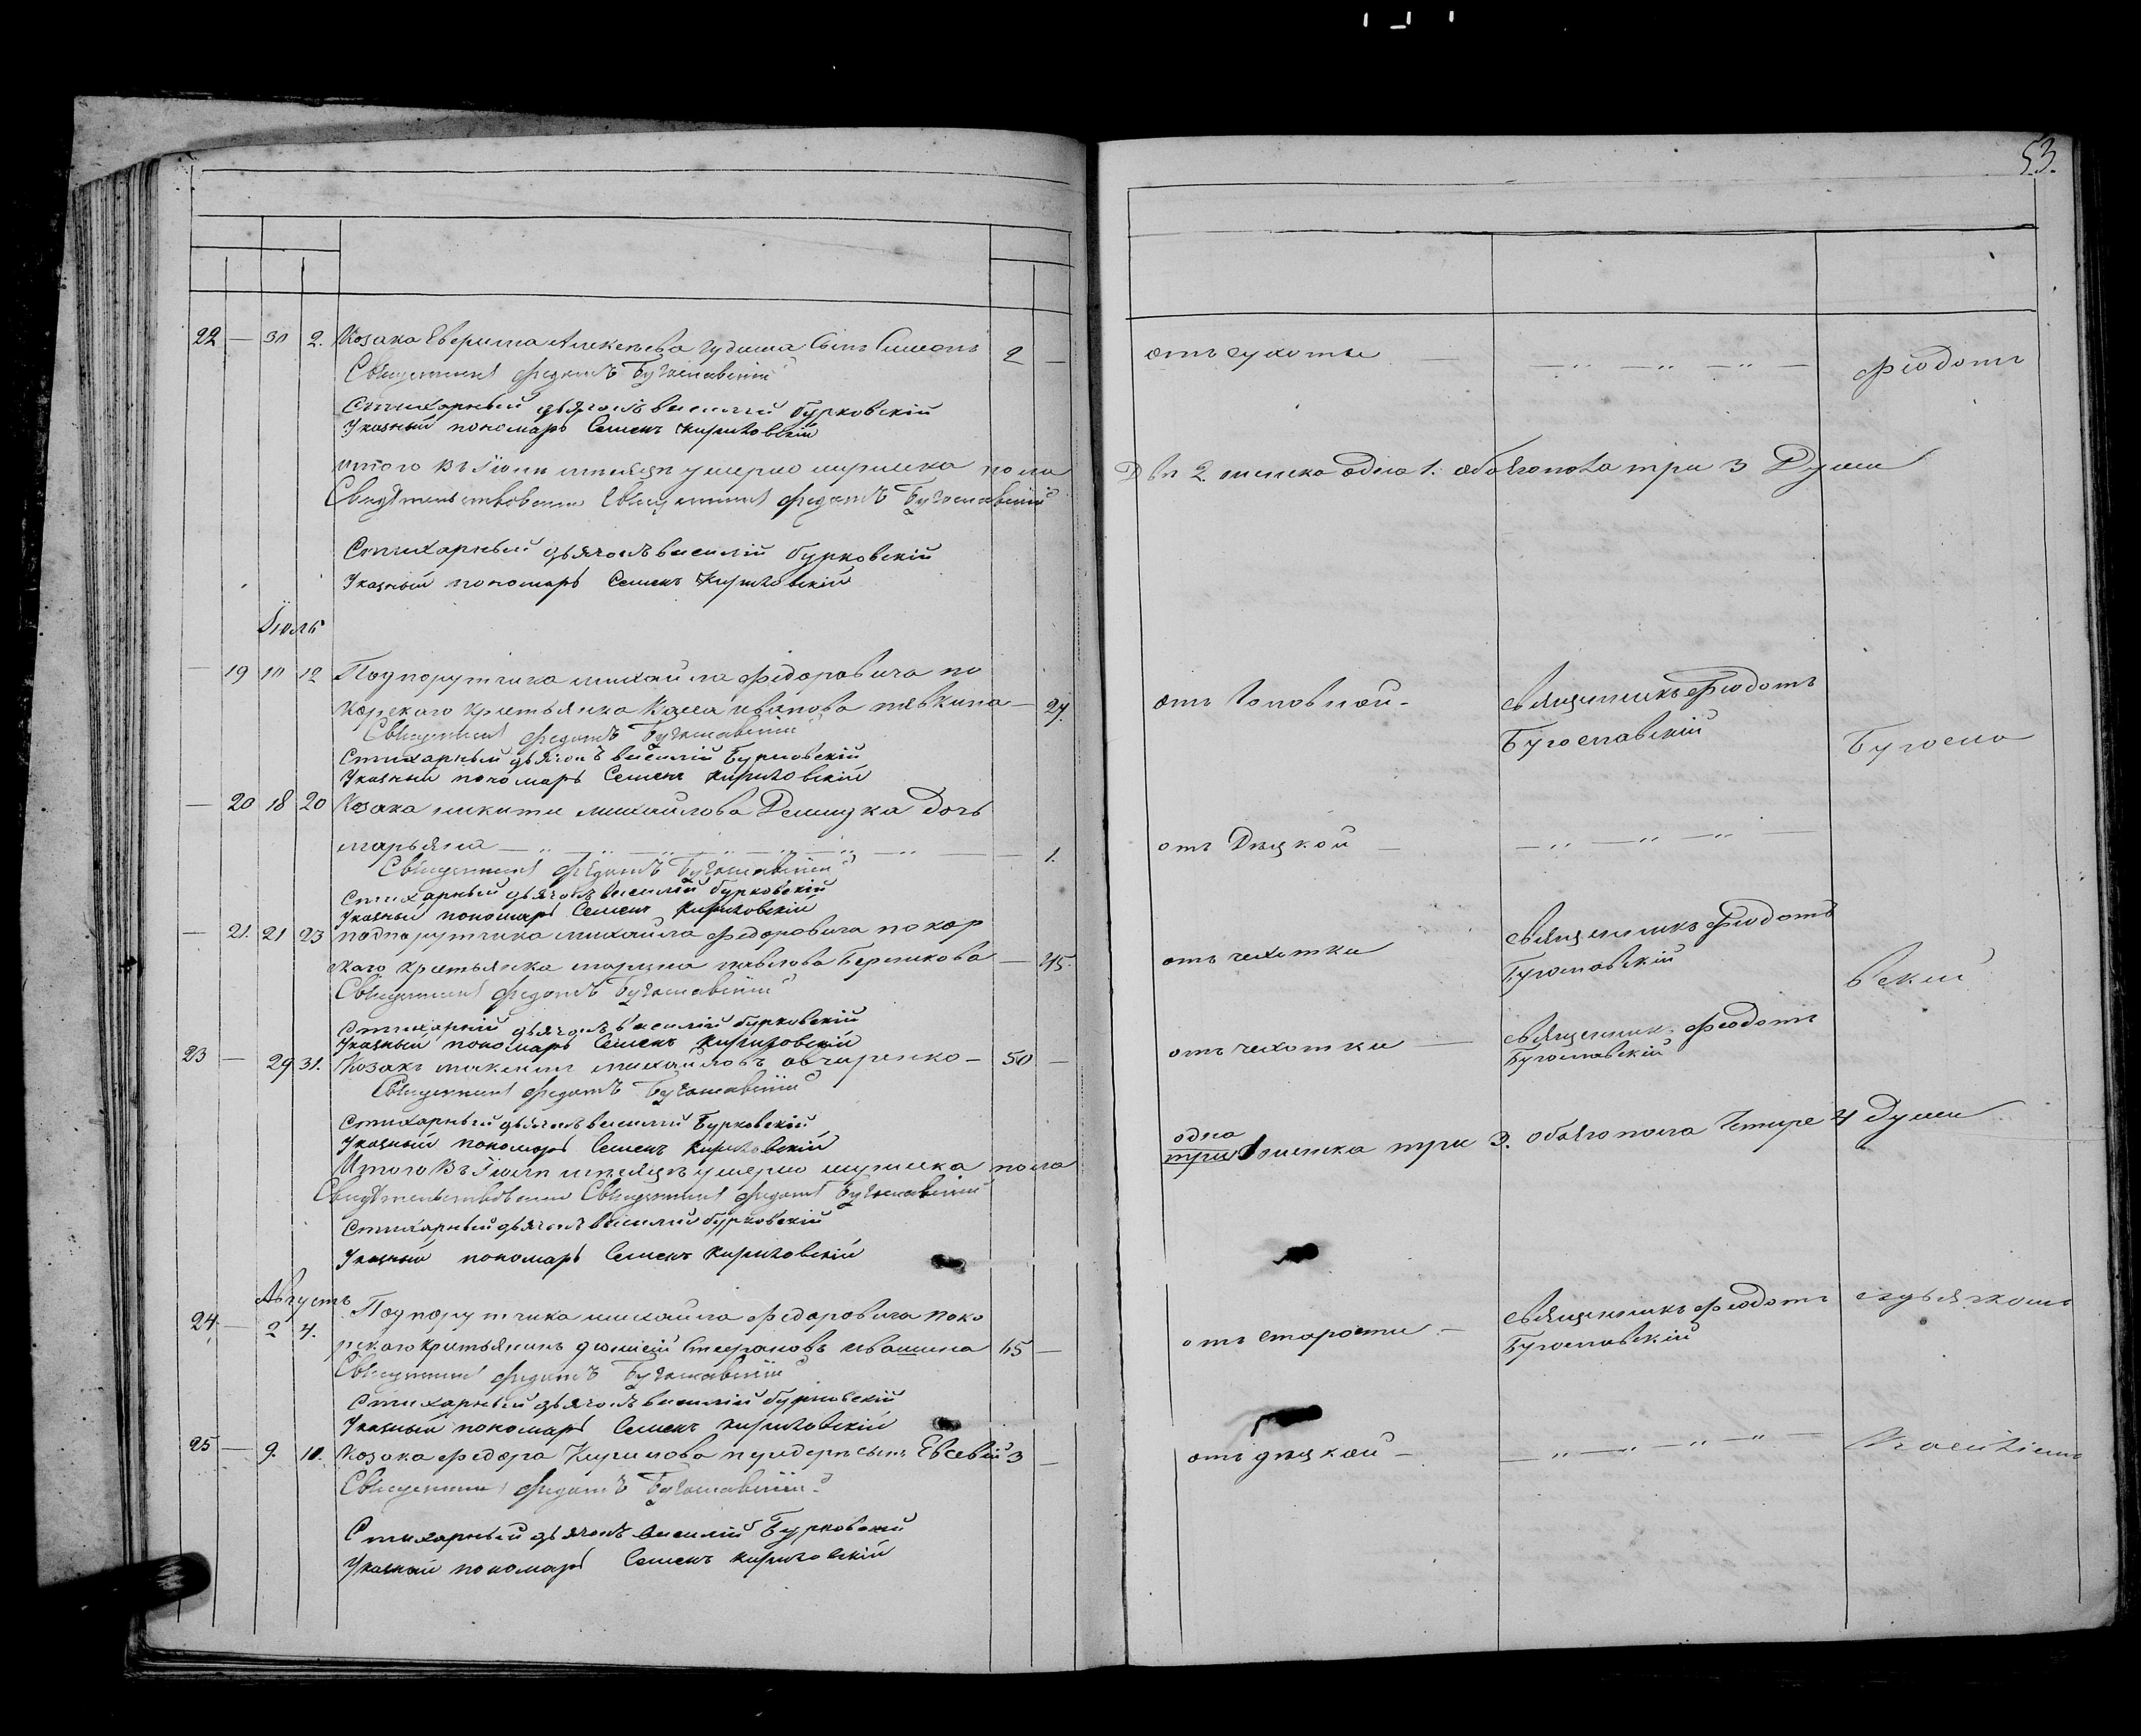 53.
22 — 30 2. Козака Алексеева Гудима Сынъ Симеонъ 2 —
отъ сухоты — — „ — „ — „ — Феодотъ
Священникъ Федотъ Бугославскій
Стихарный дьячокъ Василій Бурковскій
Указный пономарь Семенъ
Итого въ Іюни месяце умерло мужеска пола
Двп 2. женска одна 1. обоягопола три 3 Души
Свидетельствовали Священникъ Федотъ Бугославскій
Стихарный дьячокъ Василій Бурковскій
Указный пономарь Семенъ
Іюль
— 19 10 12 Подпорутчика Михаила Федоровича по
корскаго крестьянка Иванова — 27.
отъ Головной - Священникъ Феодотъ
Бугославскій Бугосла
Священникъ Федотъ Бугославскій
Стихарный дьячокъ Василій Бурковскій
Указный пономарь Семенъ
— 20 18 20 Козака Никити Михайлова дочь
Марьяна — „ — „ — „ — „ — „ — „ — 1.
отъ Дпцкой — — „ — „ — „ —
Священникъ Федотъ Бугославскій
Стихарный дьячокъ Василій Бурковскій
Указный пономарь Семенъ
— 21. 21 23 подпорутчика Михайла Федоровича покор
скаго крестьянка Марина Павлова — 45.
отъ чехотки Священникъ Феодотъ
Бугославскій вскій
Священникъ Федотъ Бугославскій
Стихарній дьячокъ Василій Бурковскій
Указный пономарь Семенъ
23 — 29 31. Козакъ Максимъ Михайловъ Овчаренко — 50 —
отъ чехотки — Священник Феодотъ
Бугославскій
Священникъ Федотъ Бугославскій
Стихарный дьячокъ Василій Бурковскій
Указный пономарь Семенъ
Итого въ Іюли месяце умерло мужеска пола
одна
три 1 женска три 3. обоягопола четире 4 души
Свидетельствовали Священникъ Федотъ Бугославскій
Стихарный дьячокъ Василій Бурковскій
Указный пономарь Семенъ
Августъ
24. — 2 4. Подпорутчика Михаила Федоровича поко
рскаго крестьянинъ Діонисій Стефановъ Ивашина 65 —
отъ старости — Священникъ Феодотъ
Бугославскій
Священникъ Федотъ Бугославскій
Стихарный дьячокъ Василій Бурковскій
Указный пономарь Семенъ
25 — 9. 10. Козака Федора Кирилова сынъ Евсевій 3 —
отъ дпцкой — — „ — „ — „ — „ —
Священникъ Федотъ Бугославскій
Стихарный дьячокъ Василій Бурковскій
Указный пономарь Семенъ